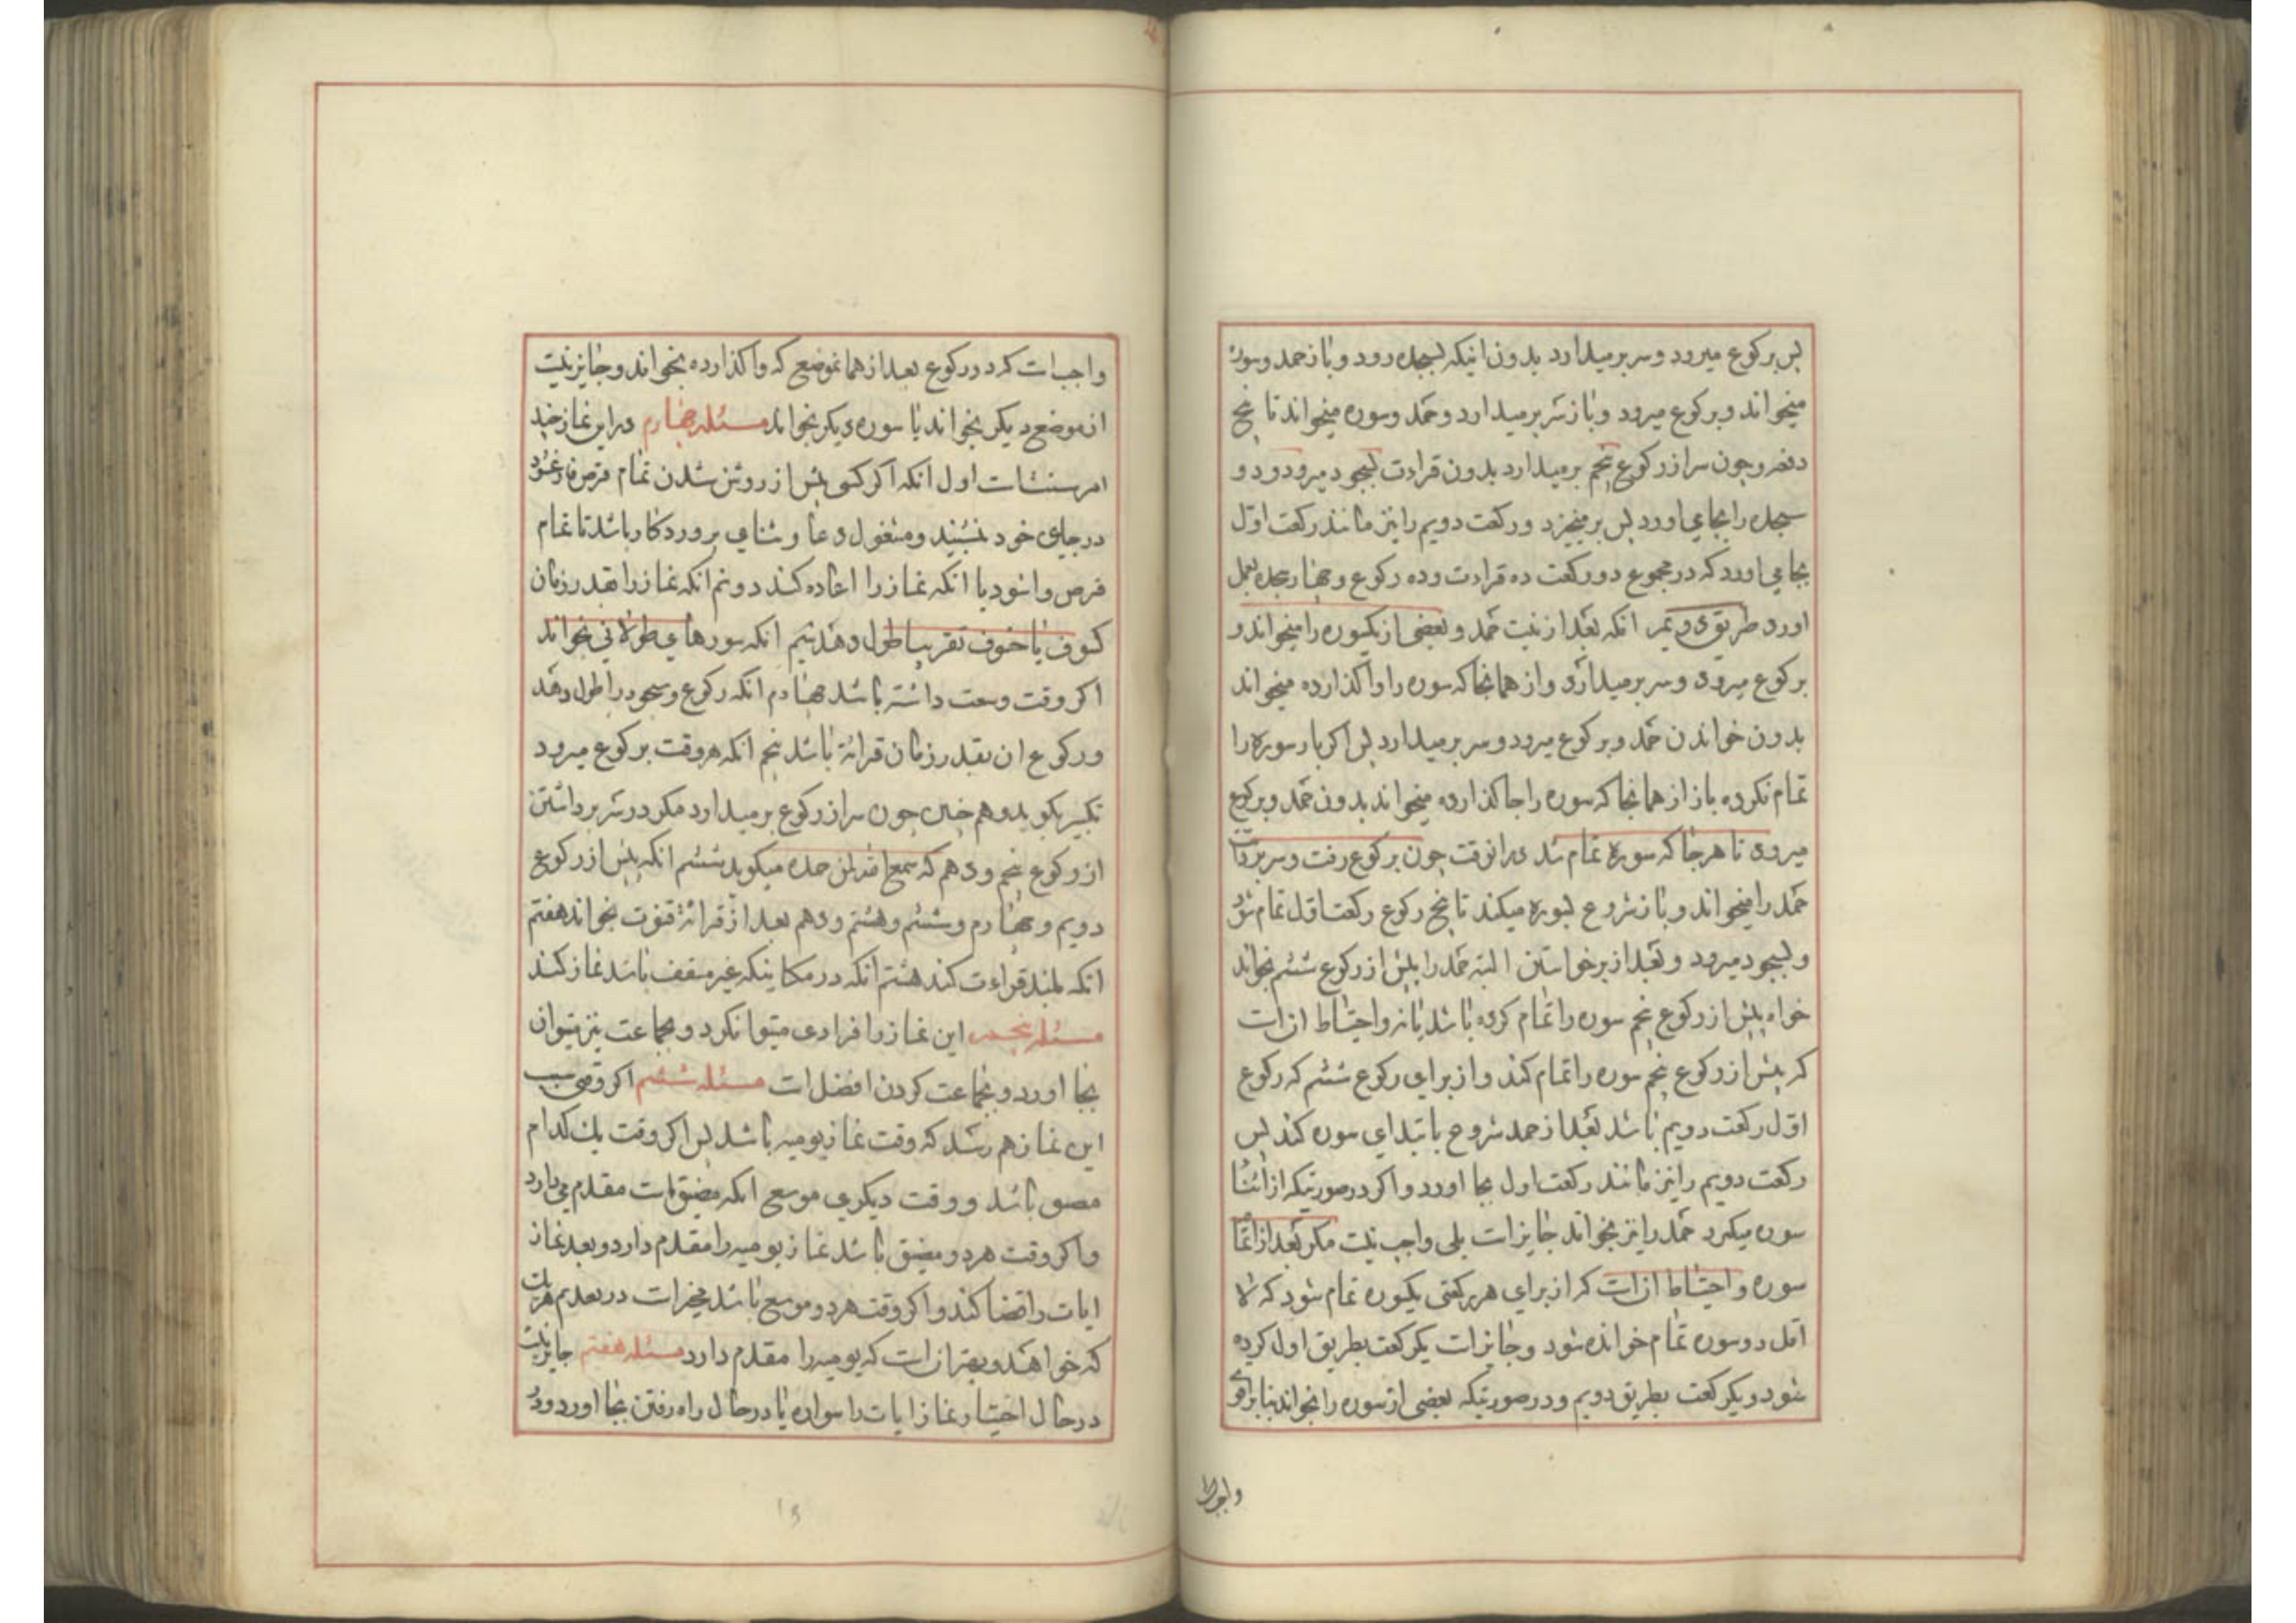 پس برکوع میرود و سر برمیدارد بدون اینکه بسجده رود و باز حمد و سوره
میخواند و برکوع میرود و باز سر برمیدارد و حمد و سوره میخواند تا پنج
دفعه و چون سر از رکوع پنجم برمیدارد بدون قراءت بسجود میرود و دو
سجده را بجا می اورد پس برمیخیزد و رکعت دویم را نیز مانند رکعت اول
بجا می اورد که در مجموع دو رکعت ده قراءت و ده رکوع و چهار سجده بعمل
اورد طریق دویم انکه بعد از نیت حمد و بعضی از یکسوره را میخواند و
برکوع میرود و سر برمیدارد و از همانجا که سوره را واگذارده میخواند
بدون خواندن حمد و برکوع میرود و سر برمیدارد پس اگر باز سوره را
تمام نکرده باز از همانجا که سوره را جا گذارده میخواند بدون حمد و برکوع
میرود تا هر جا که سوره تمام شد در انوقت چون برکوع رفت و سر برداشت
حمد را میخواند و باز شروع بسوره میکند تا پنج رکوع رکعت اول تمام شود
و بسجود میرود و بعد از برخواستن البته حمد را پیش از رکوع ششم بخواند
خواه پیش از رکوع پنجم سوره را تمام کرده باشد یا نه و احتیاط ان است
که پیش از رکوع پنجم سوره را تمام کند و از برای رکوع ششم که رکوع
اول رکعت دویم باشد بعد از حمد شروع بابتدای سوره کند پس
رکعت دویم را نیز مانند رکعت اول بجا اورد و اگر در صورتیکه از اثنا
سوره میگیرد حمد را نیز بخواند جایز است بلی واجب نیست مگر بعد از اتمام
سوره و احتیاط ان است که از برای هر رکعتی یکسوره تمام شود که لا
اقل دو سوره تمام خوانده شود و جایز است یکرکعت بطریق اول کرده
شود و یکرکعت بطریق دویم و در صورتیکه بعضی از سوره را بخواند بنا بر اقوی
واجب است که در رکوع بعد از همانموضع که واگذارده بخواند و جایز نیست
از موضع دیگر بخواند یا سوره دیگر بخواند مسئله چهارم در این نماز چند
امر سنت است اول انکه اگر کسی پیش از روشن شدن تمام قرص فارغ شود
در جای خود بنشیند و مشغول دعا و ثنای پروردگار باشد تا تمام
قرص وا شود یا انکه نماز را اعاده کند دویم انکه نماز را بقدر زمان
کسوف یا خسوف تقریبا طول دهد سیم انکه سورهای طولانی بخواند
اگر وقت وسعت داشته باشد چهارم انکه رکوع و سجود را طول دهد
و رکوع ان بقدر زمان قرائة باشد پنجم انکه هر وقت برکوع میرود
تکبیر بگوید و هم چنین چون سر از رکوع برمیدارد مگر در سر برداشتن
از رکوع پنجم و دهم که سمع الله لمن حمده میگوید ششم انکه پیش از رکوع
دویم و چهارم و ششم و هشتم و دهم بعد از قرائة قنوت بخواند هفتم
انکه بلند قراءت کند هشتم انکه در مکانیکه غیر مسقف باشد نماز کند
مسئله پنجم این نماز را فرادی میتوانکرد و بجماعت نیز میتوان
بجا اورد و بجماعت کردن افضل است مسئله ششم اگر وقتی سبب
این نماز هم رسد که وقت نماز یومیه باشد پس اگر وقت یك کدام
مضیق باشد و وقت دیگری موسع انکه مضیق است مقدم میدارد
و اگر وقت هر دو مضیق باشد نماز یومیه را مقدم دارد و بعد نماز
ایات را قضا کند و اگر وقت هر دو موسع باشد مخیر است در تقدیم هر یك
که خواهد و بهتر ان است که یومیه را مقدم دارد مسئله هفتم جایز نیست
در حال اختیار نماز ایات را سواره یا در حال راه رفتن بجا اورد و در